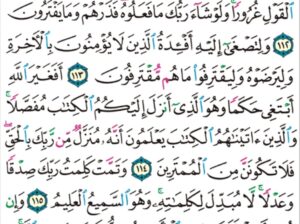 ٱلۡقَوۡلِ غُرُورٗاۚ وَلَوۡ شَآءَ رَبُّكَ مَا فَعَلُوهُۖ فَذَرۡهُمۡ وَمَا يَفۡتَرُونَ
١١٢ وَلِتَصۡغَىٰٓ إِلَيۡهِ أَفۡـِٔدَةُ ٱلَّذِينَ لَا يُؤۡمِنُونَ بِٱلۡأٓخِرَةِ
وَلِيَرۡضَوۡهُ وَلِيَقۡتَرِفُواْ مَا هُم مُّقۡتَرِفُونَ ١١٣ أَفَغَيۡرَ ٱللَّهِ
أَبۡتَغِي حَكَمٗا وَهُوَ ٱلَّذِيٓ أَنزَلَ إِلَيۡكُمُ ٱلۡكِتَٰبَ مُفَصَّلٗاۚ
وَٱلَّذِينَ ءَاتَيۡنَٰهُمُ ٱلۡكِتَٰبَ يَعۡلَمُونَ أَنَّهُۥ مُنَزَّلٞ مِّن رَّبِّكَ بِٱلۡحَقِّۖ
فَلَا تَكُونَنَّ مِنَ ٱلۡمُمۡتَرِينَ ١١٤ وَتَمَّتۡ كَلِمَتُ رَبِّكَ صِدۡقٗا
وَعَدۡلٗاۚ لَّا مُبَدِّلَ لِكَلِمَٰتِهِۦۚ وَهُوَ ٱلسَّمِيعُ ٱلۡعَلِيمُ ١١٥